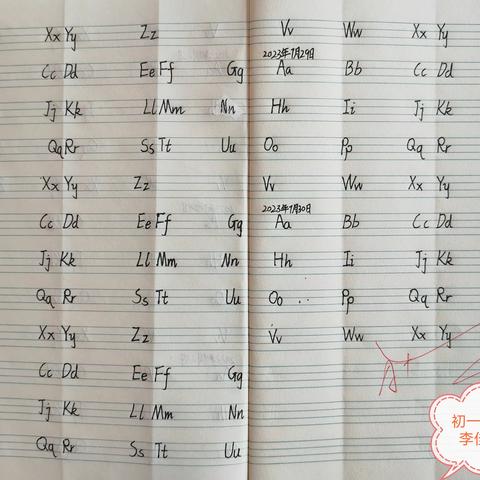 Xx Yy Zz
Cc Dd Ee Ff Gg
Jj Kk Ll Mm Nn
Qq Rr Ss Tt Uu
Xx Yy Zz
Cc Dd Ee Ff Gg
Jj Kk Ll Mm Nn
Qq Rr Ss Tt Uu
Xx Yy Zz
Cc Dd Ee Ff Gg
Jj Kk Ll Mm Nn
Qq Rr Ss Tt Uu
Vv Ww Xx Yy
2023年7月29日
Aa Bb Cc Dd
Hh Ii Jj Kk
Oo Pp Qq Rr
Vv Ww Xx Yy
2023年7月30日
Aa Bb Cc Dd
Hh Ii Jj Kk
Oo Pp Qq Rr
Vv Ww Xx Yy
A+
初一
李